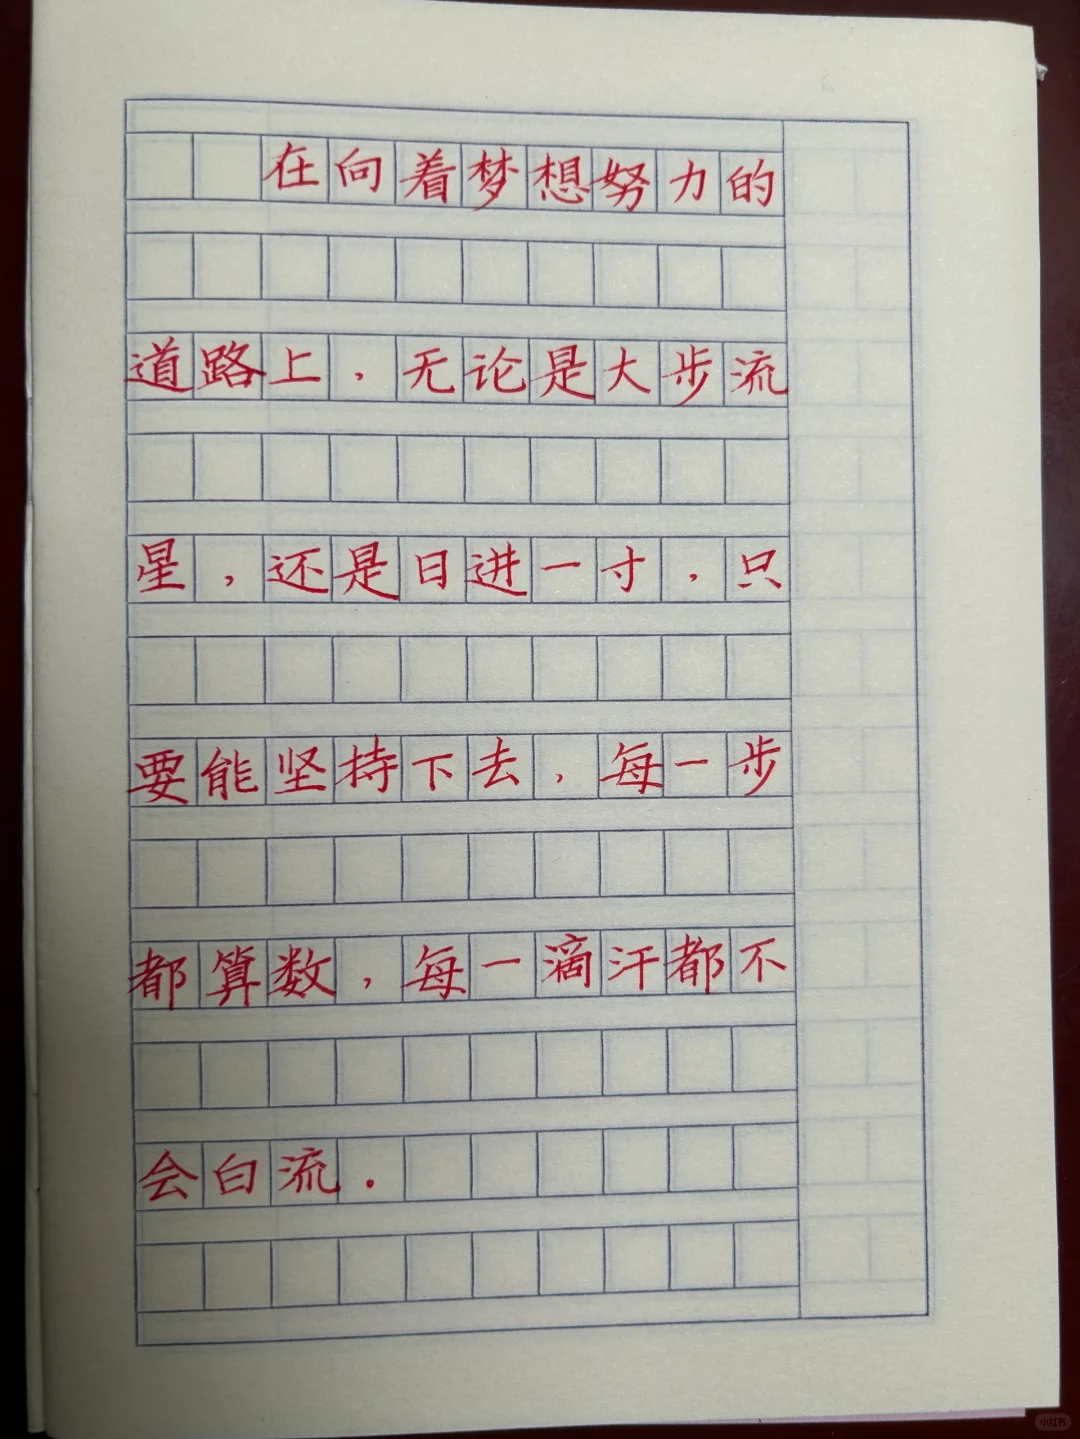 在向着梦想努力的
道路上，无论是大步流
星，还是日进一寸，只
要能坚持下去，每一步
都算数，每一滴汗都不
会白流．
小红书